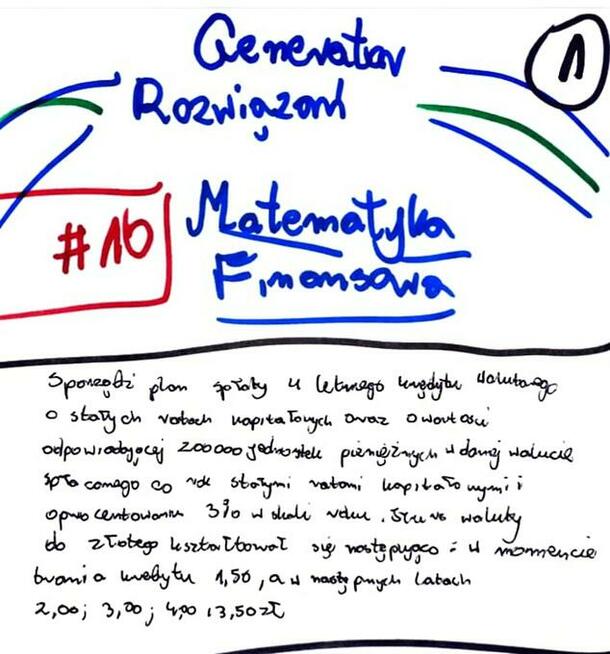 Generator
1
Rozwiązań
#16
Matematyka
Finansowa
Sporządź plan spłaty 4 letniego kredytu walutowego
o stałych ratach kapitałowych oraz o wartości
odpowiadającej 200000 jednostek pieniężnych w danej walucie
spłacanego co rok stałymi ratami kapitałowymi i
oprocentowaniu 3% w skali roku. Kurs waluty
do złotego kształtował się następująco: w momencie
brania kredytu 1,50, a w następnych latach
2,00; 3,00; 4,00 i 3,50 zł